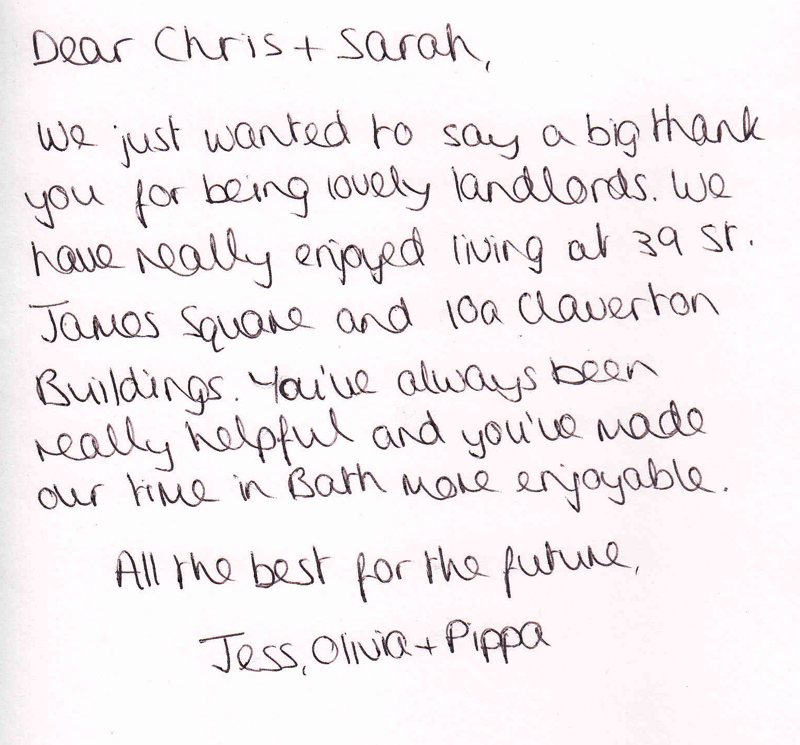 Dear Chris + Sarah,
We just wanted to say a big thank
you for being lovely landlords. We
have really enjoyed living at 39 St.
James Square and 10a Claverton
Buildings. You've always been
really helpful and you've made
our time in Bath more enjoyable.
All the best for the future,
Jess, Olivia + Pippa